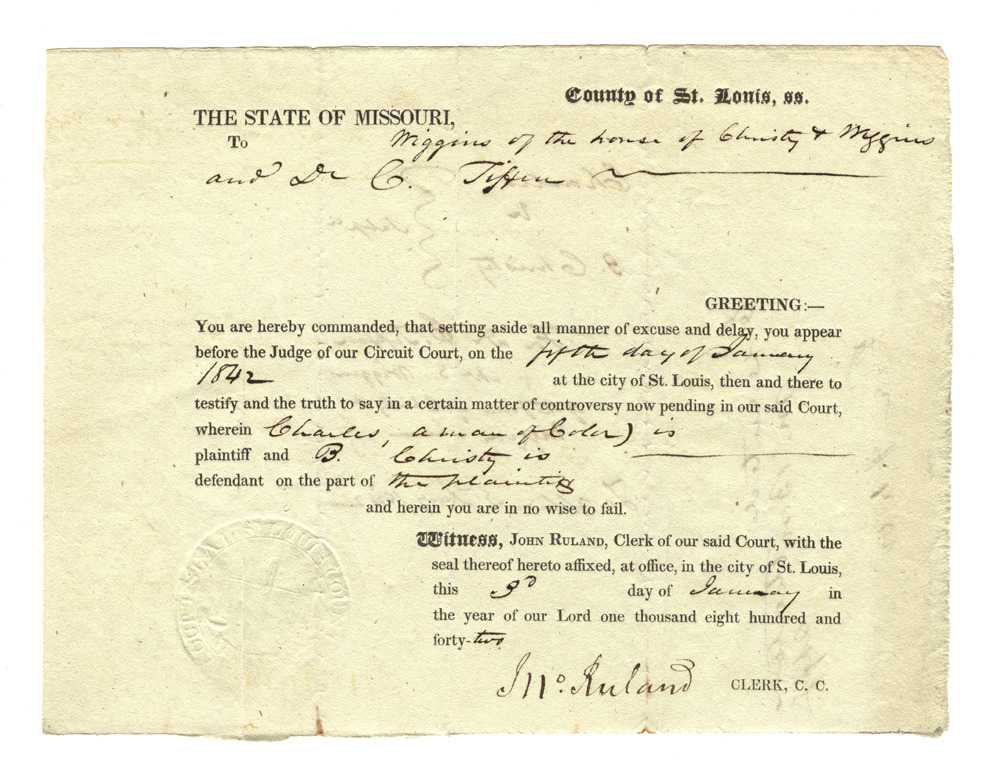 County of St. Louis, ss.
THE STATE OF MISSOURI,
To Wiggins of the house of Christy & Wiggins
and Dr C. Tiffin
GREETING:—
You are hereby commanded, that setting aside all manner of excuse and delay, you appear
before the Judge of our Circuit Court, on the fifth day of January
1842 at the city of St. Louis, then and there to
testify and the truth to say in a certain matter of controversy now pending in our said Court,
wherein Charles, a man of Color) is
plaintiff and B. Christy is
defendant on the part of the plaintiff
and herein you are in no wise to fail.
Witness, JOHN RULAND, Clerk of our said Court, with the
seal thereof hereto affixed, at office, in the city of St. Louis,
this 3d day of January in
the year of our Lord one thousand eight hundred and
forty-two
Jno. Ruland CLERK, C. C.